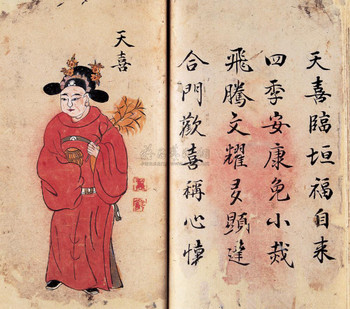 天喜臨垣福自来
四季安康免小烖
飛騰文耀多顕達
合門歡喜稱心懷
天喜